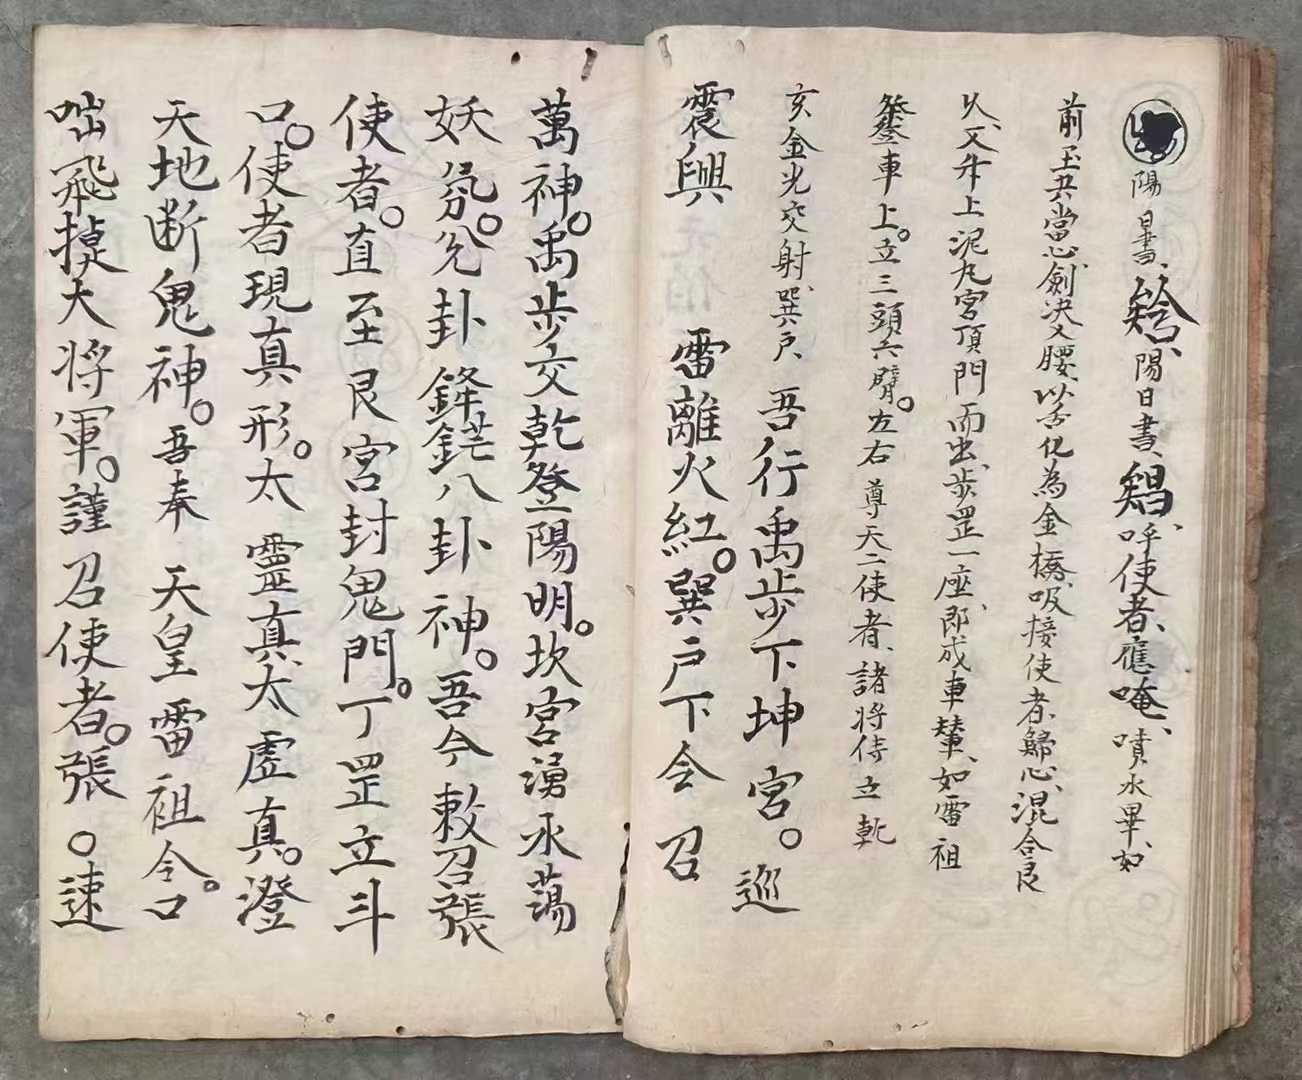 陽日書、䳽、陽日書、鷄、呼使者、應唵、噴水畢、如
前玉共當心、劍決乂腰、以舌化為金橋、吸接使者、歸心、混合艮
从、又升上泥丸宮頂門而出、步罡一座、即成車輦、如雷祖
登車上。立三頭六臂。左右尊天二使者、諸將侍立乾
亥金光交射、巽戶、吾行禹步下坤宮。巡
震興雷離火紅。巽戶下令召
萬神。禹步交乾登陽明。坎宮湧水蕩
妖氛。兌卦鋒鋩八卦神。吾今敕召張
使者。直至艮宮封鬼門。丁罡立斗
口。使者現真形。太靈真、太虛真。澄
天地断鬼神。吾奉天皇雷祖令。口
咄飛捷大将軍。謹召使者。張。速